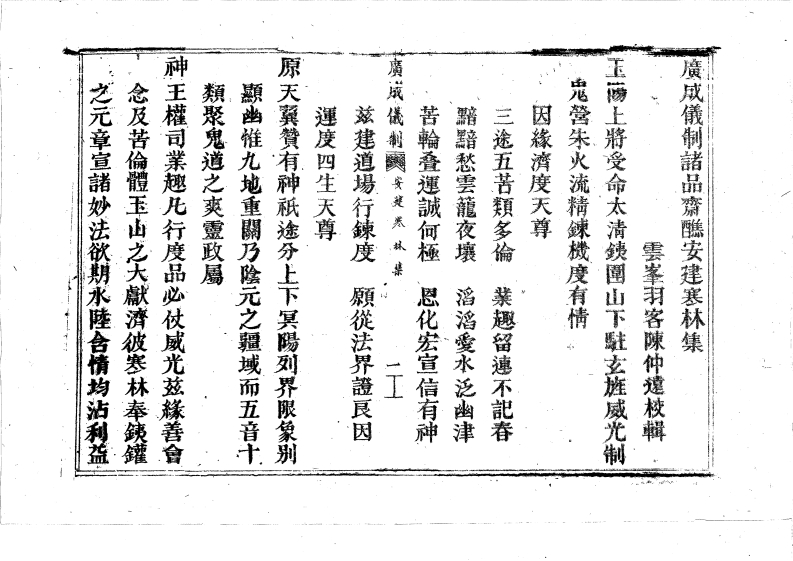 廣成儀制諸品齋醮安建寒林集
雲峯羽客陳仲遠校輯
玉陽上將受命太清鐵圍山下駐玄旌威光制
鬼營朱火流精鍊機度有情
因緣濟度天尊
三途五苦類多倫　業趣留連不記春
黯黯愁雲籠夜壤　滔滔愛水泛幽津
苦輪叠運誠何極　恩化宏宣信有神
茲建道場行鍊度　願從法界證良因
廣成儀制　安建寒林集　二
運度四生天尊
原夫翼贊有神祇途分上下冥陽列界限象別
顯幽惟九地重關乃陰元之疆域而五音十
類聚鬼道之爽靈政屬
神王權司業趣凡行度品必仗威光茲緣善會
念及苦倫體玉山之大獻濟彼寒林奉鐵鑵
之元章宣諸妙法欲期水陸含情均沾利益